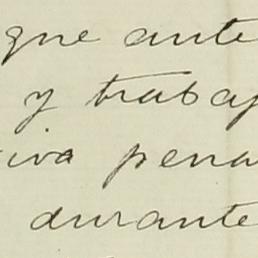 que ante
y trabaj
iva pena
durante